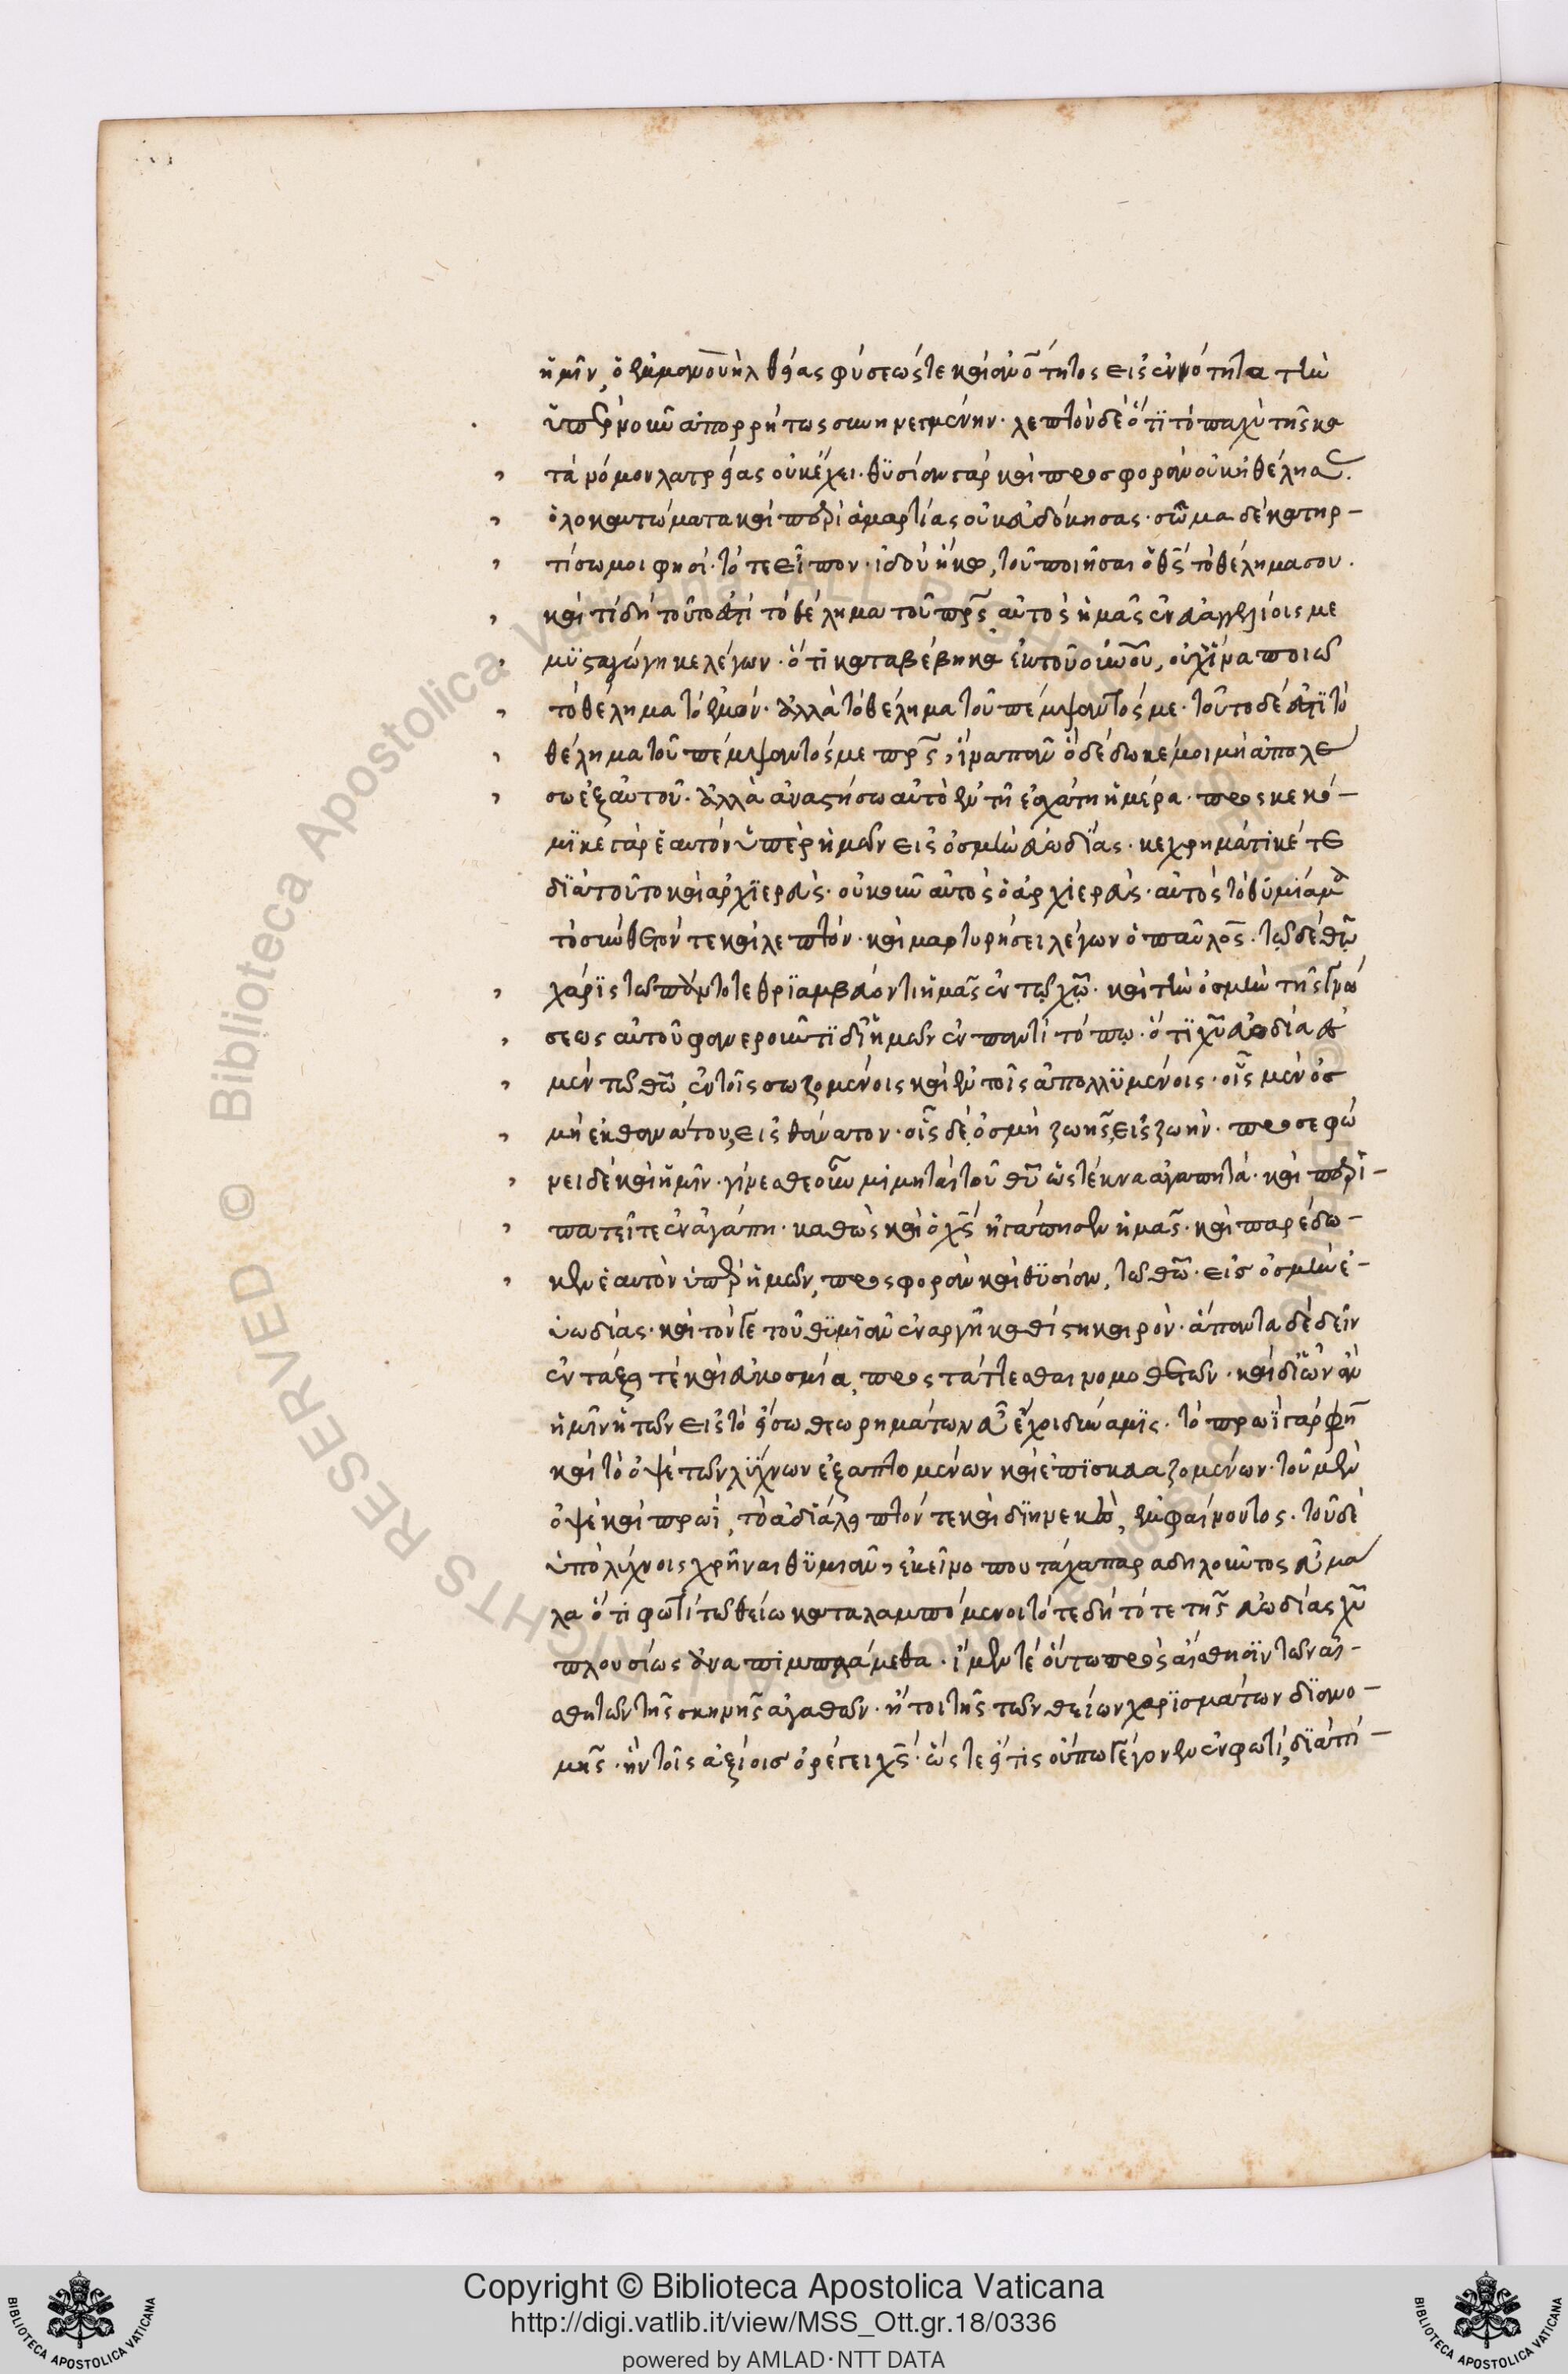 ἡμῖν, ὁ ἐμμανουὴλ θείας φύσεώς τε καὶ ἀνοτητος εἰς ἑνότητα τὴν
ὑπὲρ νοῦν ἀπορρήτως συνηνεγμένην· λεπτὸν δὲ ὅτι τὸ παχὺ τῆς κα
τὰ νόμον λατρείας οὐκ ἔχει· θυσίαν γὰρ καὶ προσφορὰν οὐκ ἠθέλησας·
ὁλοκαυτώματα καὶ περὶ ἁμαρτίας οὐκ εὐδόκησας· σῶμα δὲ κατηρ-
τίσω μοι φησί· τότε εἶπον· ἰδοὺ ἥκω, τοῦ ποιῆσαι ὁ θς τὸ θέλημά σου.
καὶ τί δὴ τοῦτο ἐστὶ τὸ θέλημα τοῦ πρς, αὐτὸς ἡμᾶς ἐν εὐαγγελίοις με
μυσταγώγηκε λέγων· ὅτι καταβέβηκα ἐκ τοῦ οὐνοῦ, οὐχ ἵνα ποιῶ
τὸ θέλημα τὸ ἐμόν· ἀλλὰ τὸ θέλημα τοῦ πέμψαντός με· τοῦτο δέ ἐστι τὸ
θέλημα τοῦ πέμψαντός με πρς, ἵνα πᾶν ὃ δέδωκέ μοι μὴ ἀπολέ
σω ἐξ αὐτοῦ· ἀλλὰ ἀναστήσω αὐτὸ ἐν τῇ ἐσχάτῃ ἡμέρᾳ· προσκεκό-
μικε γὰρ ἑαυτὸν ὑπὲρ ἡμῶν εἰς ὀσμὴν εὐωδίας· κεχρημάτικέ τε
διὰ τοῦτο καὶ ἀρχιερεύς· οὐκοῦν αὐτὸς ὁ ἀρχιερεύς· αὐτὸς τὸ θυμίαμα
τὸ σύνθετόν τε καὶ λεπτόν· καὶ μαρτυρήσει λέγων ὁ παῦλος· τῷ δὲ θῷ
χάρις τῷ πάντοτε θριαμβεύοντι ἡμᾶς ἐν τῷ χῷ· καὶ τὴν ὀσμὴν τῆς γνώ
σεως αὐτοῦ φανεροῦντι δι' ἡμῶν ἐν παντὶ τόπῳ· ὅτι χυ εὐωδία ἐσ
μὲν τῷ θῷ ἐν τοῖς σωζομένοις καὶ ἐν τοῖς ἀπολλυμένοις· οἷς μὲν ὀσ
μὴ ἐκ θανάτου, εἰς θάνατον· οἷς δὲ ὀσμὴ ζωῆς, εἰς ζωήν· προσεφώ
νει δὲ καὶ ἡμῖν· γίνεσθε οὖν μιμηταὶ τοῦ θυ ὡς τέκνα ἀγαπητά· καὶ περι-
πατεῖτε ἐν ἀγάπῃ· καθὼς καὶ ὁ χς ἠγάπησεν ἡμᾶς· καὶ παρέδω-
κεν ἑαυτὸν ὑπὲρ ἡμῶν, προσφορὰν καὶ θυσίαν, τῷ θῷ· εἰς ὀσμὴν ἐ-
υωδίας· καὶ τόν γε τοῦ θυμιᾶν ἐναργῆ καθίστη καιρόν· ἅπαντα δὲ δεῖν
ἐν τάξει τὲ καὶ εὐκοσμίᾳ, προστάττεσθαι νομοθετῶν· καὶ δι' ὧν ἂν
ἡμῖν ἡ τῶν εἰς τὸ εἴσω θεωρημάτων εὖ ἔχοι δύναμις· τὸ πρωῒ γάρ φη
καὶ τὸ ὀψὲ τῶν λύχνων ἐξαπτομένων καὶ ἐπισκευαζομένων· τοῦ μὲν
ὀψὲ καὶ πρωῒ, τὸ ἀδιάλειπτόν τε καὶ διηνεκὲς, ἐμφαίνοντος· τοῦ δὲ
ὑπὸ λύχνοις χρῆναι θυμιᾶν, ἐκεῖνό που τάχα παραδηλοῦντος εὖ μά
λα ὅτι φωτὶ τῷ θείῳ καταλαμπόμενοι τότε δὴ τότε τῆς εὐωδίας χυ
πλουσίως ἀναπιμπλάμεθα· ἴμεν τὲ οὕτω πρὸς αἴσθησιν τῶν αἰ-
σθητῶν τῆς σκηνῆς ἀγαθῶν· ἤτοι τῆς τῶν θείων χαρισμάτων διανο-
μῆς· ἣν τοῖς ἀξίοις ὀρέγει χς· ὥστε εἴ τις οὔπω γέγονεν ἐν φωτί, διὰ πί-
Copyright © Biblioteca Apostolica Vaticana
http://digi.vatlib.it/view/MSS_Ott.gr.18/0336
powered by AMLAD·NTT DATA